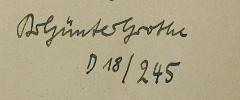 Dr Günter Grothe
D 18/245